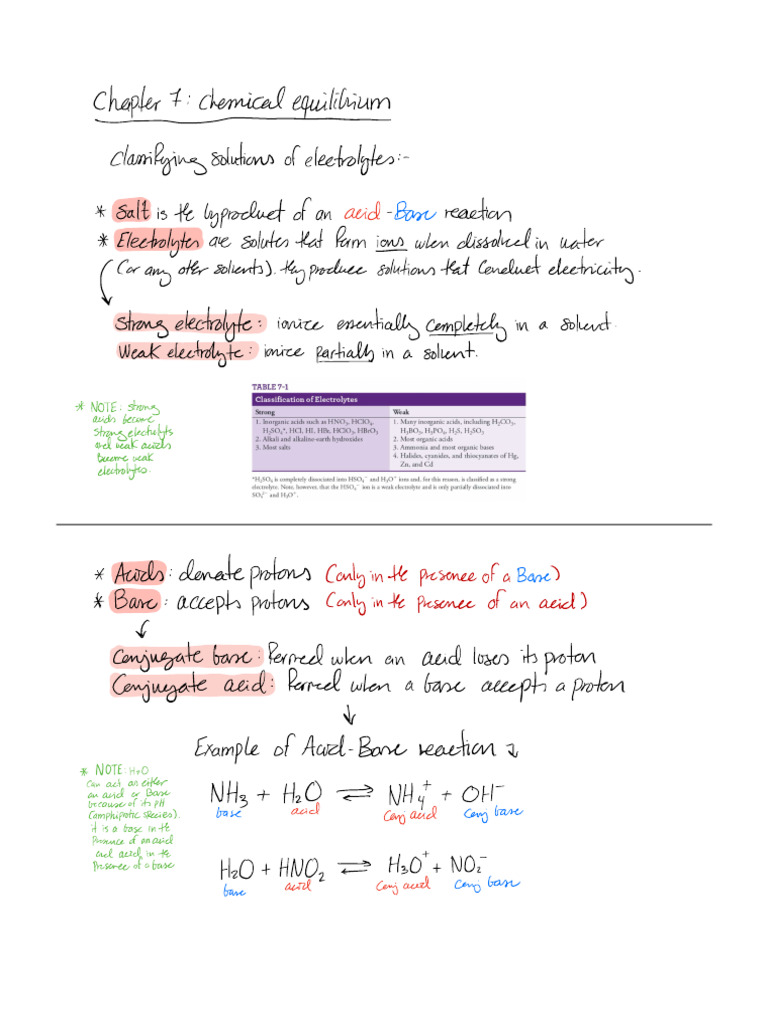 Chapter 7: Chemical equilibrium
Classifying solutions of electrolytes:-
* Salt is the byproduct of an acid-Base reaction
* Electrolytes are solutes that form ions when dissolved in water
(or any other solvents). they produce solutions that conduct electricity.
Strong electrolyte: ionize essentially completely in a solvent.
Weak electrolyte: ionize partially in a solvent.
* NOTE: strong
acids become
strong electrolyts
and weak acids
become weak
electrolytes.
TABLE 7-1
Classification of Electrolytes
Strong Weak
1. Inorganic acids such as HNO₃, HClO₄, 1. Many inorganic acids, including H₂CO₃,
H₂SO₄*, HCl, HI, HBr, HClO₃, HBrO₃ H₃BO₃, H₃PO₄, H₂S, H₂SO₃
2. Alkali and alkaline-earth hydroxides 2. Most organic acids
3. Most salts 3. Ammonia and most organic bases
4. Halides, cyanides, and thiocyanates of Hg,
Zn, and Cd
*H₂SO₄ is completely dissociated into HSO₄⁻ and H₃O⁺ ions and, for this reason, is classified as a strong
electrolyte. Note, however, that the HSO₄⁻ ion is a weak electrolyte and is only partially dissociated into
SO₄²⁻ and H₃O⁺.
* Acids: donate protons (only in the presence of a Base)
* Base: accepts protons (only in the presence of an acid)
Conjugate base: Formed when an acid loses its proton
Conjugate acid: Formed when a base accepts a proton
Example of Acid-Base reaction
* NOTE: H₂O
can act as either
an acid or Base
because of its pH
(amphiprotic species).
it is a base in the
presence of an acid
and acid in the
presence of a base
NH₃ + H₂O ⇌ NH₄⁺ + OH⁻
base acid conj acid conj base
H₂O + HNO₂ ⇌ H₃O⁺ + NO₂⁻
base acid conj acid conj base